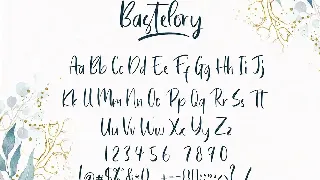 Bastelory
Aa Bb Cc Dd Ee Ff Gg Hh Ti Jj
Kk Ll Mm Nn Oo Pp Qq Rr Ss Tt
Uu Vv Ww Xx Yy Zz
123456 7890